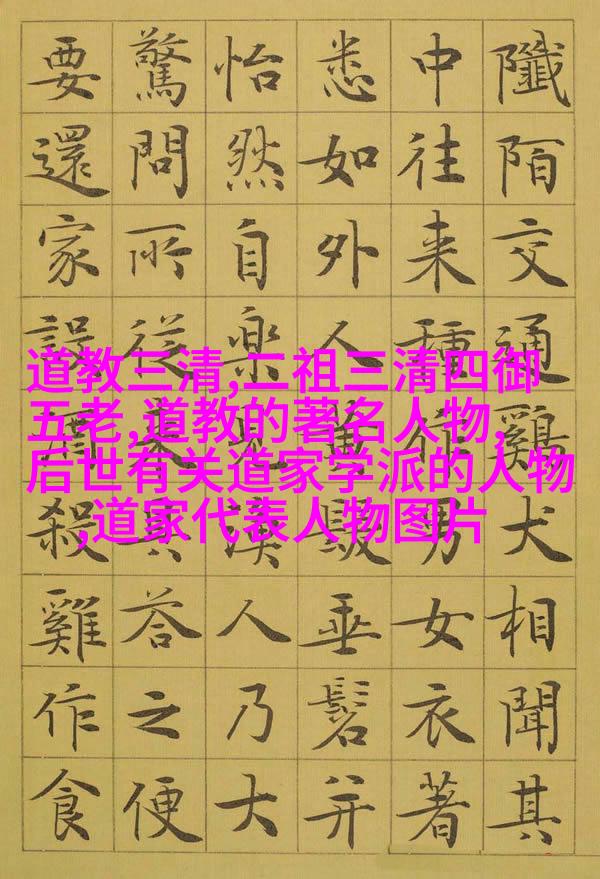 陌交通雞犬相聞其
中往来種作男女衣著
悉如外人垂髫并
怡然自楽見漁人乃大
驚問所從来具答之便
要還家設殺雞作食
道教三清,二祖三清四御
五老,道教的著名人物,
后世有关道家学派的人物
,道家代表人物图片